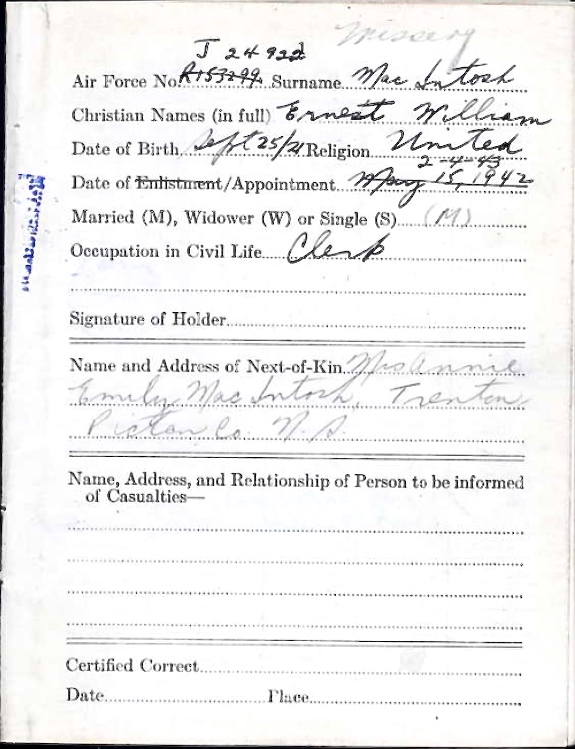 Missing
J 24922
Air Force No. R153299 Surname Mac Intosh
Christian Names (in full) Ernest William
Date of Birth Sept 25/21 Religion United
2-4-43
Date of Enlistment/Appointment May 15, 1942
Married (M), Widower (W) or Single (S) (M)
Occupation in Civil Life Clerk
Signature of Holder
Name and Address of Next-of-Kin Mrs Annie
Emily Mac Intosh, Trenton
Pictou Co. N.S.
Name, Address, and Relationship of Person to be informed
of Casualties—
Certified Correct
Date Place